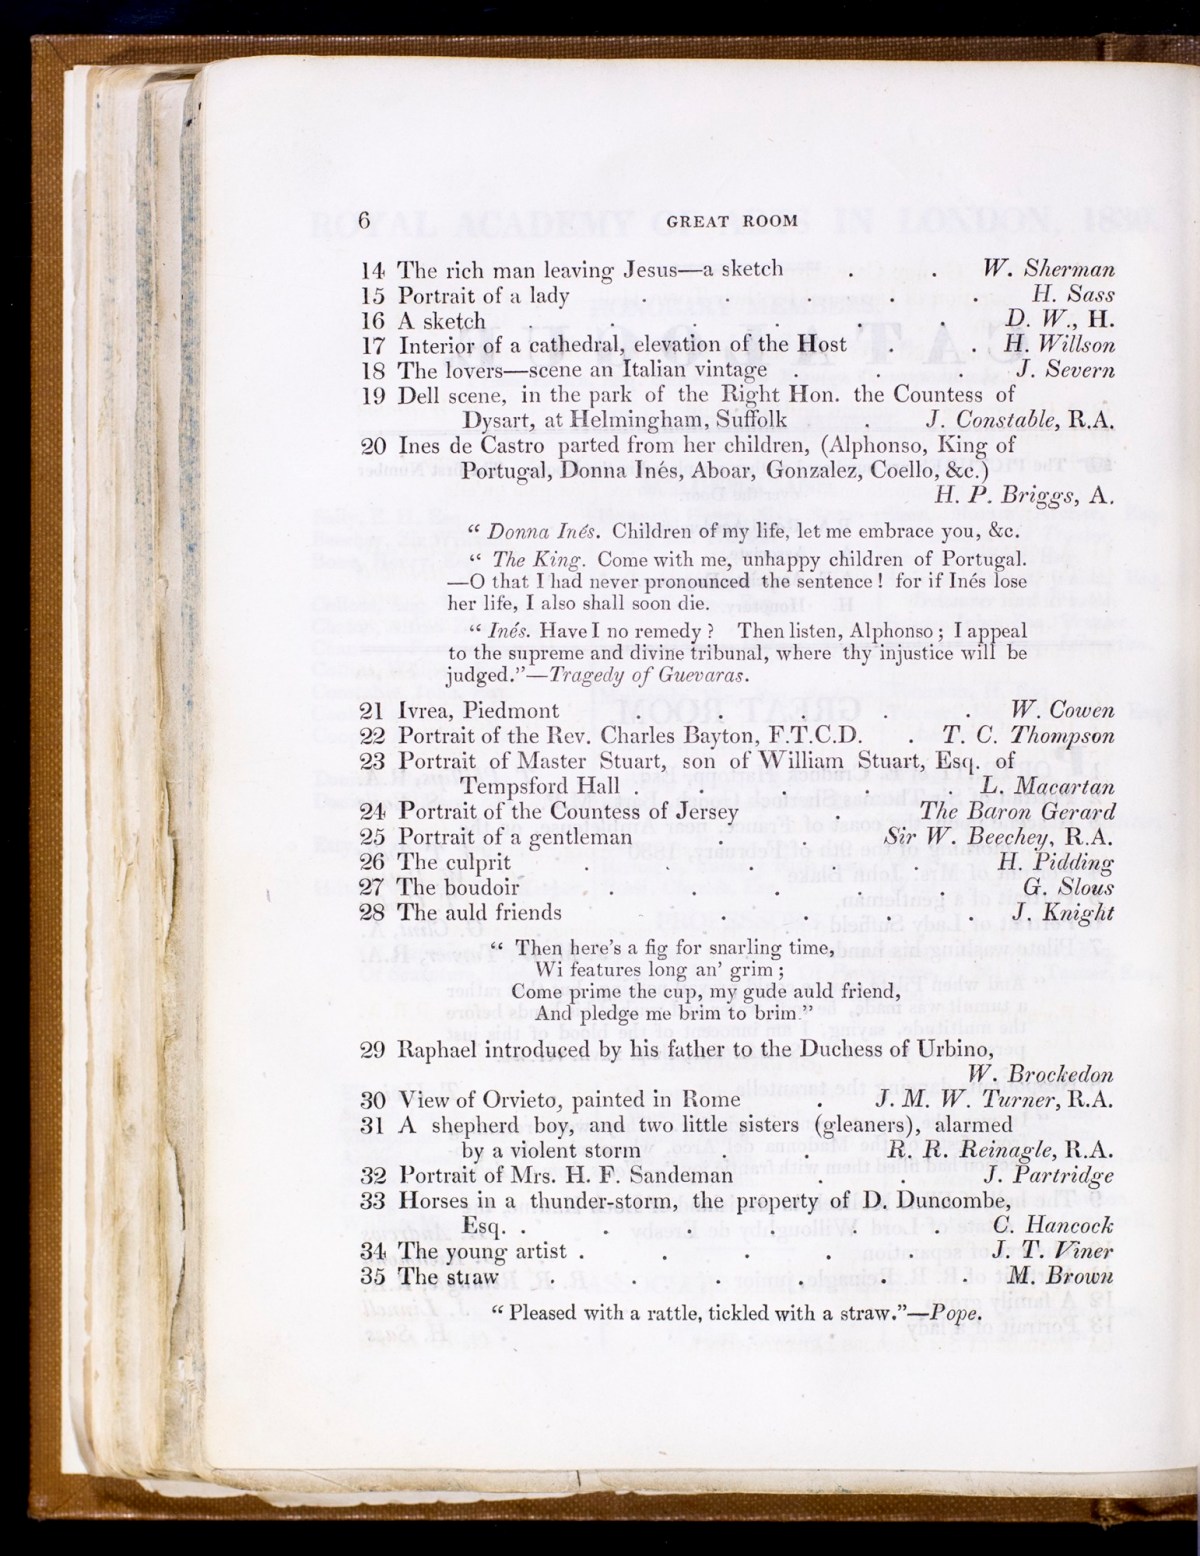 6 GREAT ROOM
14 The rich man leaving Jesus—a sketch . . W. Sherman
15 Portrait of a lady . . . . . H. Sass
16 A sketch . . . . . . D. W., H.
17 Interior of a cathedral, elevation of the Host . . H. Willson
18 The lovers—scene an Italian vintage . . . J. Severn
19 Dell scene, in the park of the Right Hon. the Countess of
Dysart, at Helmingham, Suffolk . J. Constable, R.A.
20 Ines de Castro parted from her children, (Alphonso, King of
Portugal, Donna Inés, Aboar, Gonzalez, Coello, &c.)
H. P. Briggs, A.
“ Donna Inés. Children of my life, let me embrace you, &c.
“ The King. Come with me, unhappy children of Portugal.
—O that I had never pronounced the sentence ! for if Inés lose
her life, I also shall soon die.
“ Inés. Have I no remedy ? Then listen, Alphonso ; I appeal
to the supreme and divine tribunal, where thy injustice will be
judged.”—Tragedy of Guevaras.
21 Ivrea, Piedmont . . . . . W. Cowen
22 Portrait of the Rev. Charles Bayton, F.T.C.D. . T. C. Thompson
23 Portrait of Master Stuart, son of William Stuart, Esq. of
Tempsford Hall . . . . . L. Macartan
24 Portrait of the Countess of Jersey . The Baron Gerard
25 Portrait of a gentleman . . Sir W. Beechey, R.A.
26 The culprit . . . . . H. Pidding
27 The boudoir . . . . . G. Slous
28 The auld friends . . . . J. Knight
“ Then here’s a fig for snarling time,
Wi features long an’ grim ;
Come prime the cup, my gude auld friend,
And pledge me brim to brim.”
29 Raphael introduced by his father to the Duchess of Urbino,
W. Brockedon
30 View of Orvieto, painted in Rome . J. M. W. Turner, R.A.
31 A shepherd boy, and two little sisters (gleaners), alarmed
by a violent storm . . R. R. Reinagle, R.A.
32 Portrait of Mrs. H. F. Sandeman . . J. Partridge
33 Horses in a thunder-storm, the property of D. Duncombe,
Esq. . . . . . . C. Hancock
34 The young artist . . . . . J. T. Viner
35 The straw . . . . . . M. Brown
“ Pleased with a rattle, tickled with a straw.”—Pope.